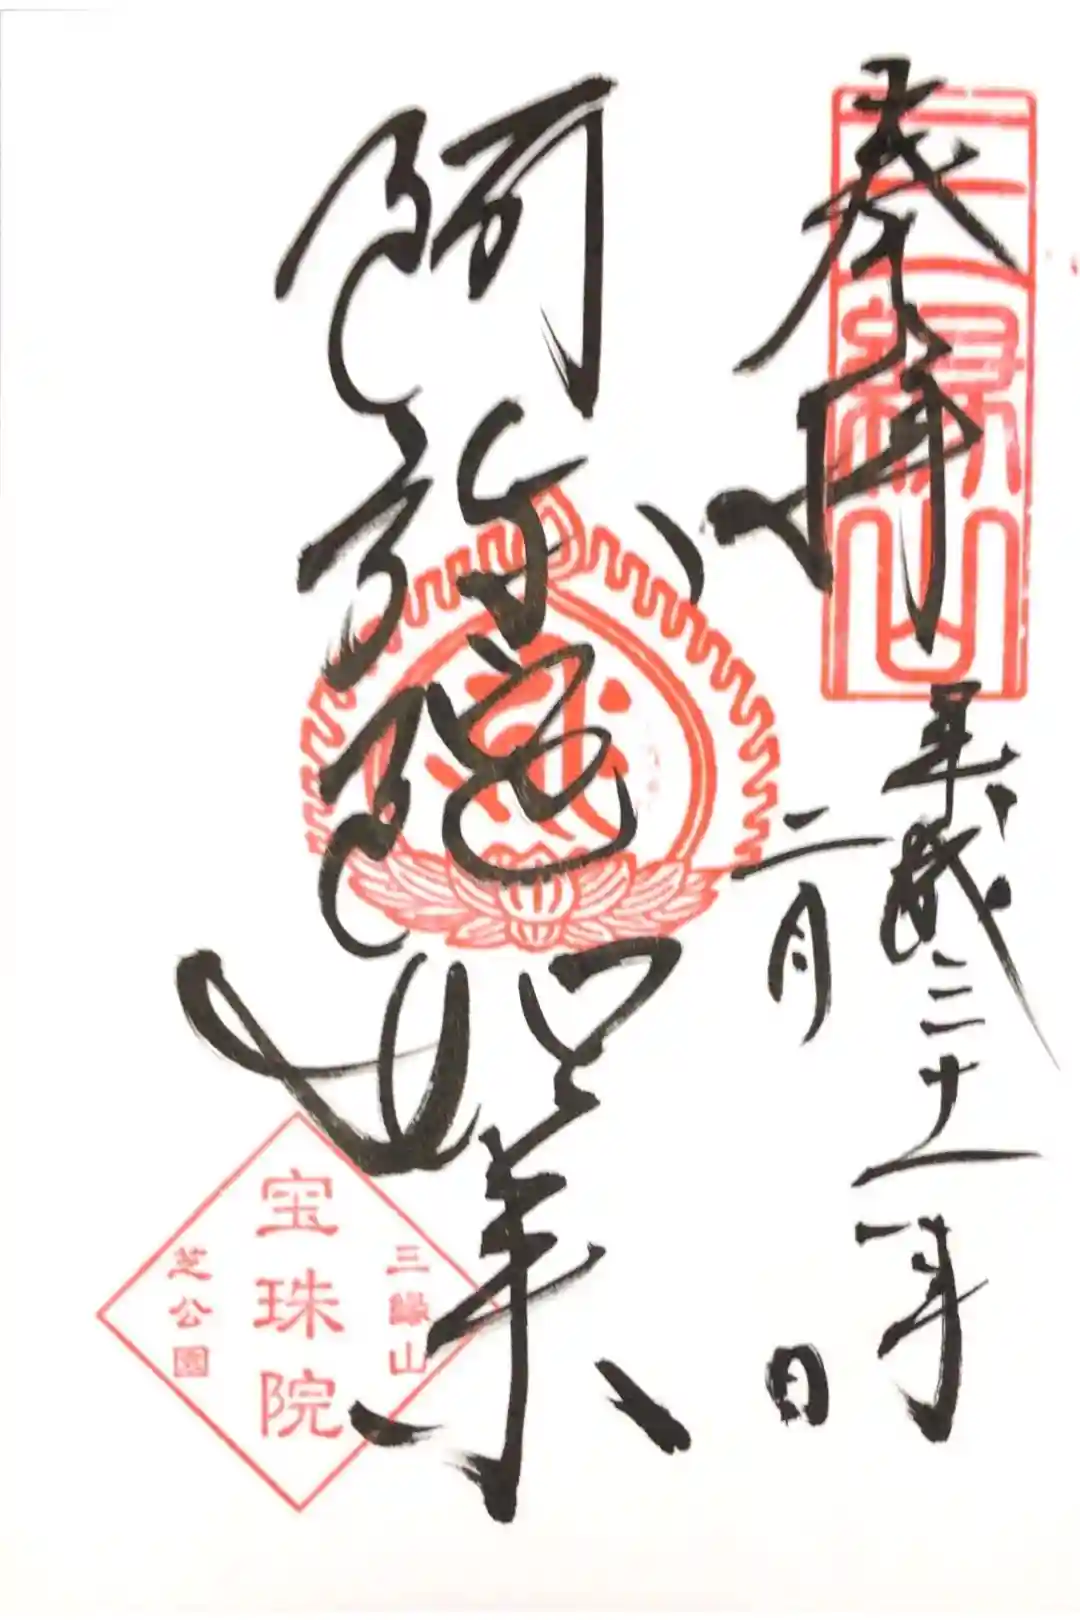 奉拝
三縁山
平成三十一年
二月 日
阿弥陀
如来
三縁山
宝珠院
芝公園